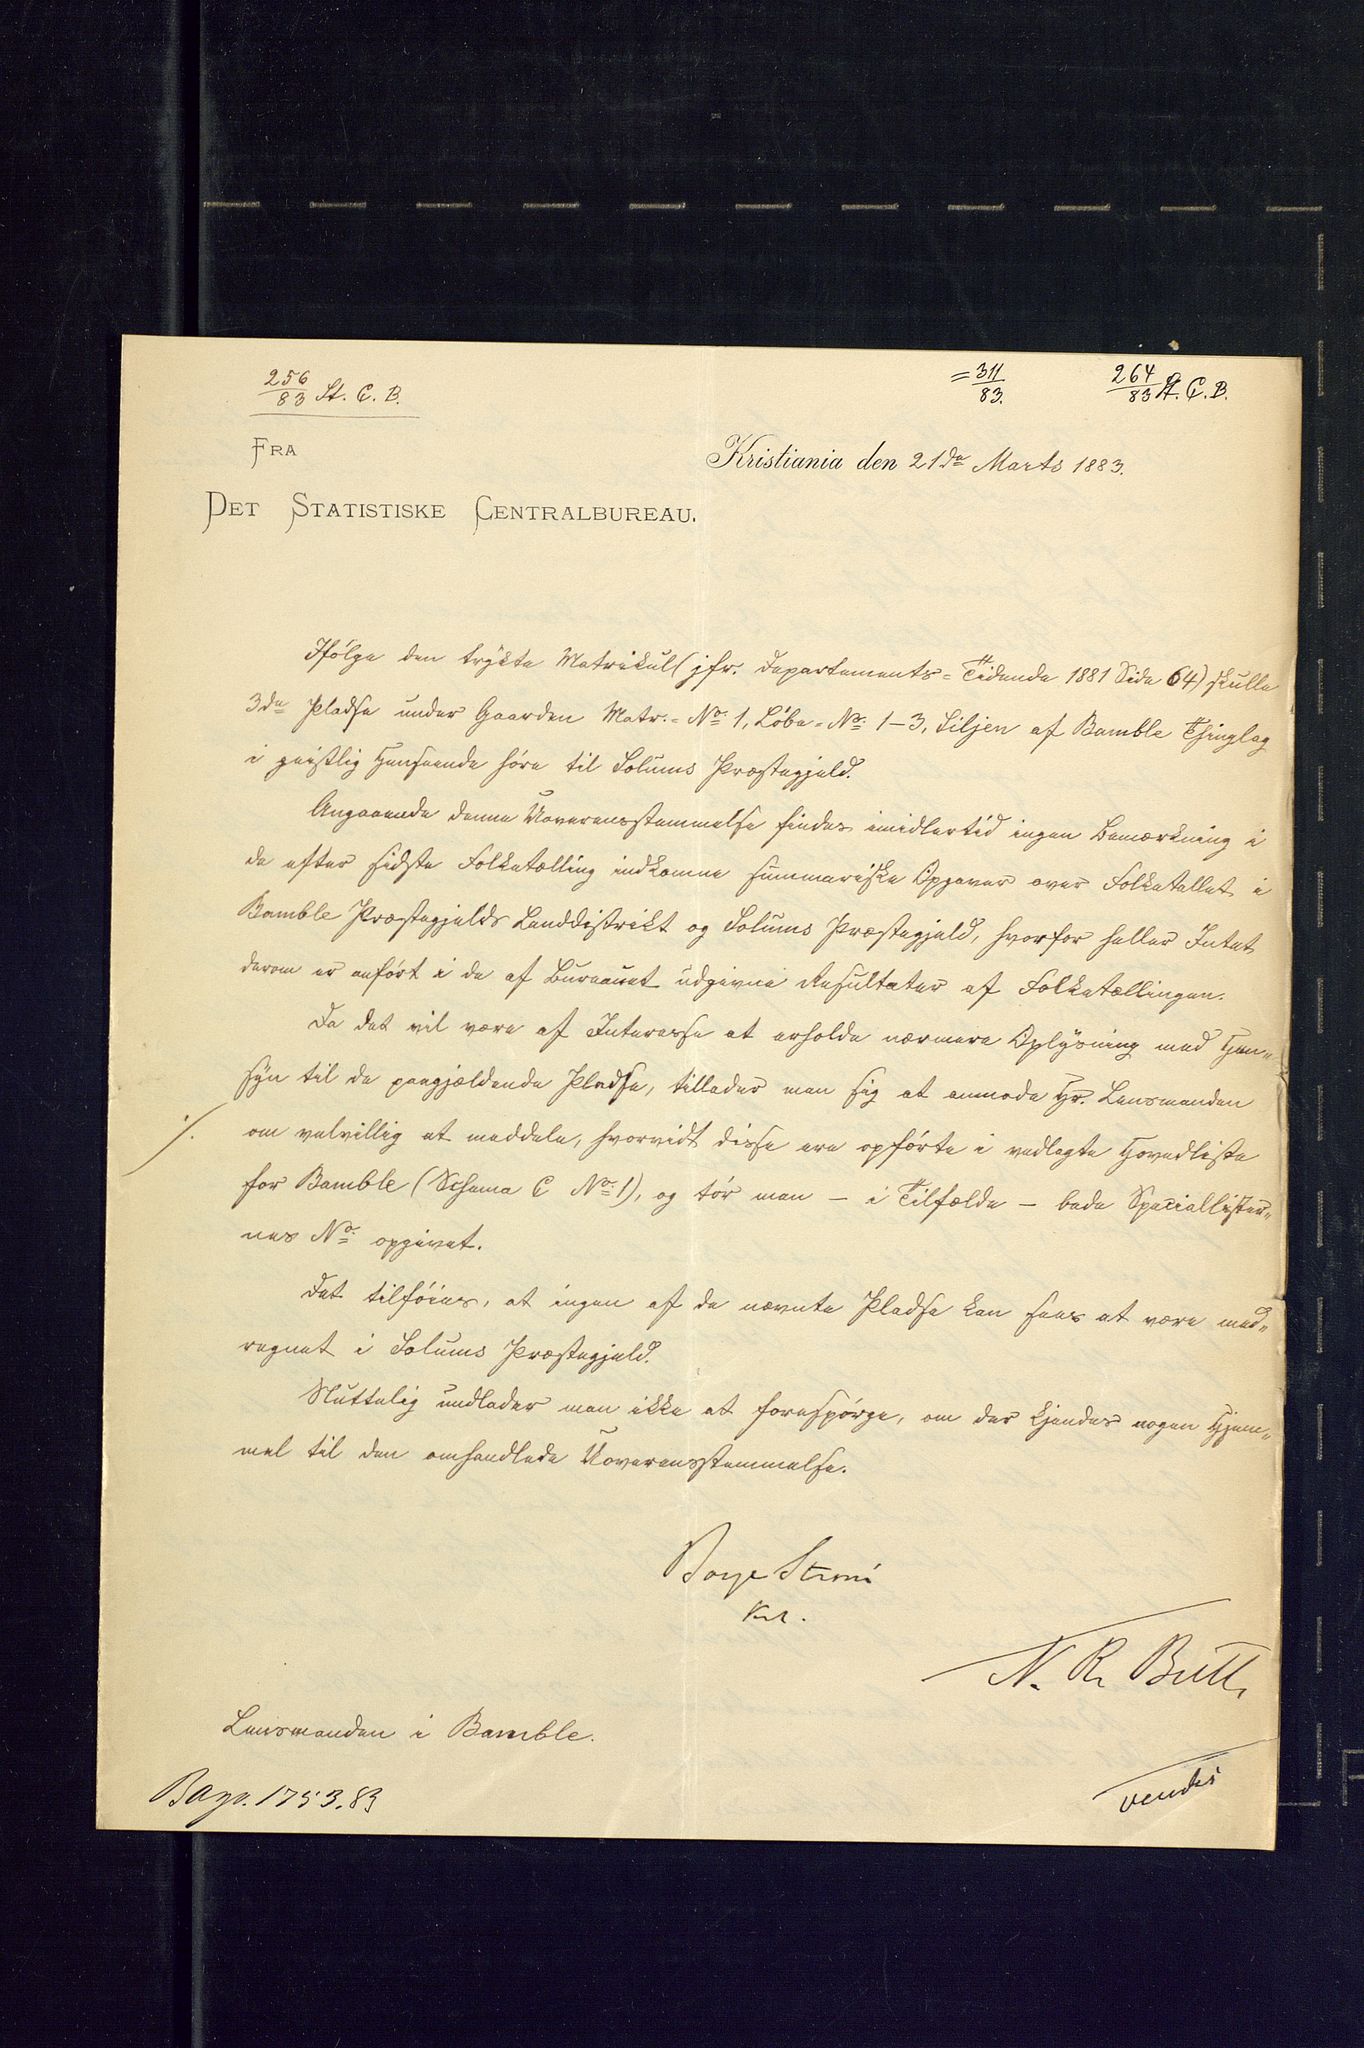 256/83 St. C. B.
= 311/83.
264/83 St. C. B.
FRA
Kristiania den 21de Marts 1883.
DET STATISTISKE CENTRALBUREAU.
Ifølge den trykte Matrikul (jfr. Departements-Tidende 1881 Side 64) skulle
3de Pladse under Gaarden Matr.-No. 1, Løbe-No. 1-3, Siljen af Bamble Thinglag
i geistlig Henseende høre til Solums Præstegjeld.
Angaaende denne Uoverensstemmelse findes imidlertid ingen Bemærkning i
de efter sidste Folketælling indkomne summariske Opgaver over Folketallet i
Bamble Præstegjelds Landdistrikt og Solums Præstegjeld, hvorfor heller Intet
derom er anført i de af Bureauet udgivne Resultater af Folketællingen.
Da det vil være af Interesse at erholde nærmere Oplysning med Hen-
syn til de paagjældende Pladse, tillader man sig at anmode Hr. Lensmanden
./.
om velvillig at meddele, hvorvidt disse ere opførte i vedlagte Hovedliste
for Bamble (Schema C No. 1), og tør man - i Tilfælde - bede Speciallister-
nes No. opgivet.
Det tilføies, at ingen af de nævnte Pladse kan sees at være med-
regnet i Solums Præstegjeld.
Sluttelig undlader man ikke at forespørge, om der kjendes nogen Hjem-
mel til den omhandlede Uoverensstemmelse.
Boye Strøm
Kst.
N. R. Bull
Lensmanden i Bamble.
1753.83
vendes